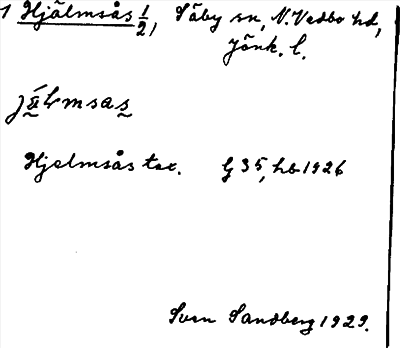 1 Hjälmsås 1/2, Säby sn, N. Vedbo hd,
Jönk. l.
Hjelmsås tax. G 35, hb 1926
Sven Sandberg 1929.